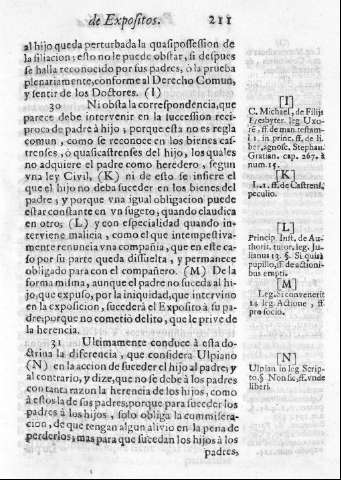 de Expositos. 211
al hijo queda perturbada la quasipossession de
la filiacion; esto no le puede obstar, si despues
se halla reconocido por sus padres, ò la prueba
plenariamente, conforme al Derecho Comun,
y sentir de los Doctores. (I)
30 Ni obsta la correspondencia, que
parece debe intervenir en la succession reci-
proca de padre à hijo; porque esta no es regla
comun, como se reconoce en los bienes cas-
trenses, ò quasicastrenses del hijo, los quales
no adquiere el padre como heredero, segun
vna ley Civil, (K) ni de esto se infiere el
que el hijo no deba suceder en los bienes del
padre; y porque vna igual obligacion puede
estar constante en vn sugeto, quando claudica
en otro; (L) y con especialidad quando in-
terviene malicia, como el que intempestiva-
mente renuncia vna compañia, que en este ca-
so por su parte queda dissuelta, y permanece
obligado para con el compañero. (M) De la
forma misma, aunque el padre no suceda al hi-
jo, que expuso, por la iniquidad, que intervino
en la exposicion, sucederà el Exposito à su pa-
dre; porque no cometiò delito, que le prive de
la herencia.
31 Ultimamente conduce à esta do-
ctrina la diferencia, que considera Ulpiano
(N) en la accion de suceder el hijo al padre; y
al contrario, y dize, que no se debe à los padres
con tanta razon la herencia de los hijos, como
à estos la de sus padres, porque para suceder los
padres à los hijos, solo obliga la commisera-
cion, de que tengan algun alivio en la pena de
perderlos; mas para que sucedan los hijos à los
padres,
[I]
C. Michael, de Filijs
Presbyter. leg. Uxo-
rē, ff. de man. testam-
l. 1. in princ. ff. de li-
ber. agnosc. Stephan.
Gratian. cap. 267. à
num. 15.
[K]
L. 2. ff. de Castrens.
peculio.
[L]
Princip. Inst. de Au-
thorit. tutor. leg. Ju-
lianus 13. §. Si quis à
pupillo, ff. de actioni-
bus empti.
[M]
Leg. Si convenerit
14. leg. Actione, ff.
pro socio.
[N]
Ulpian. in leg. Scrip-
to. § Non se, ff. vnde
liberi.